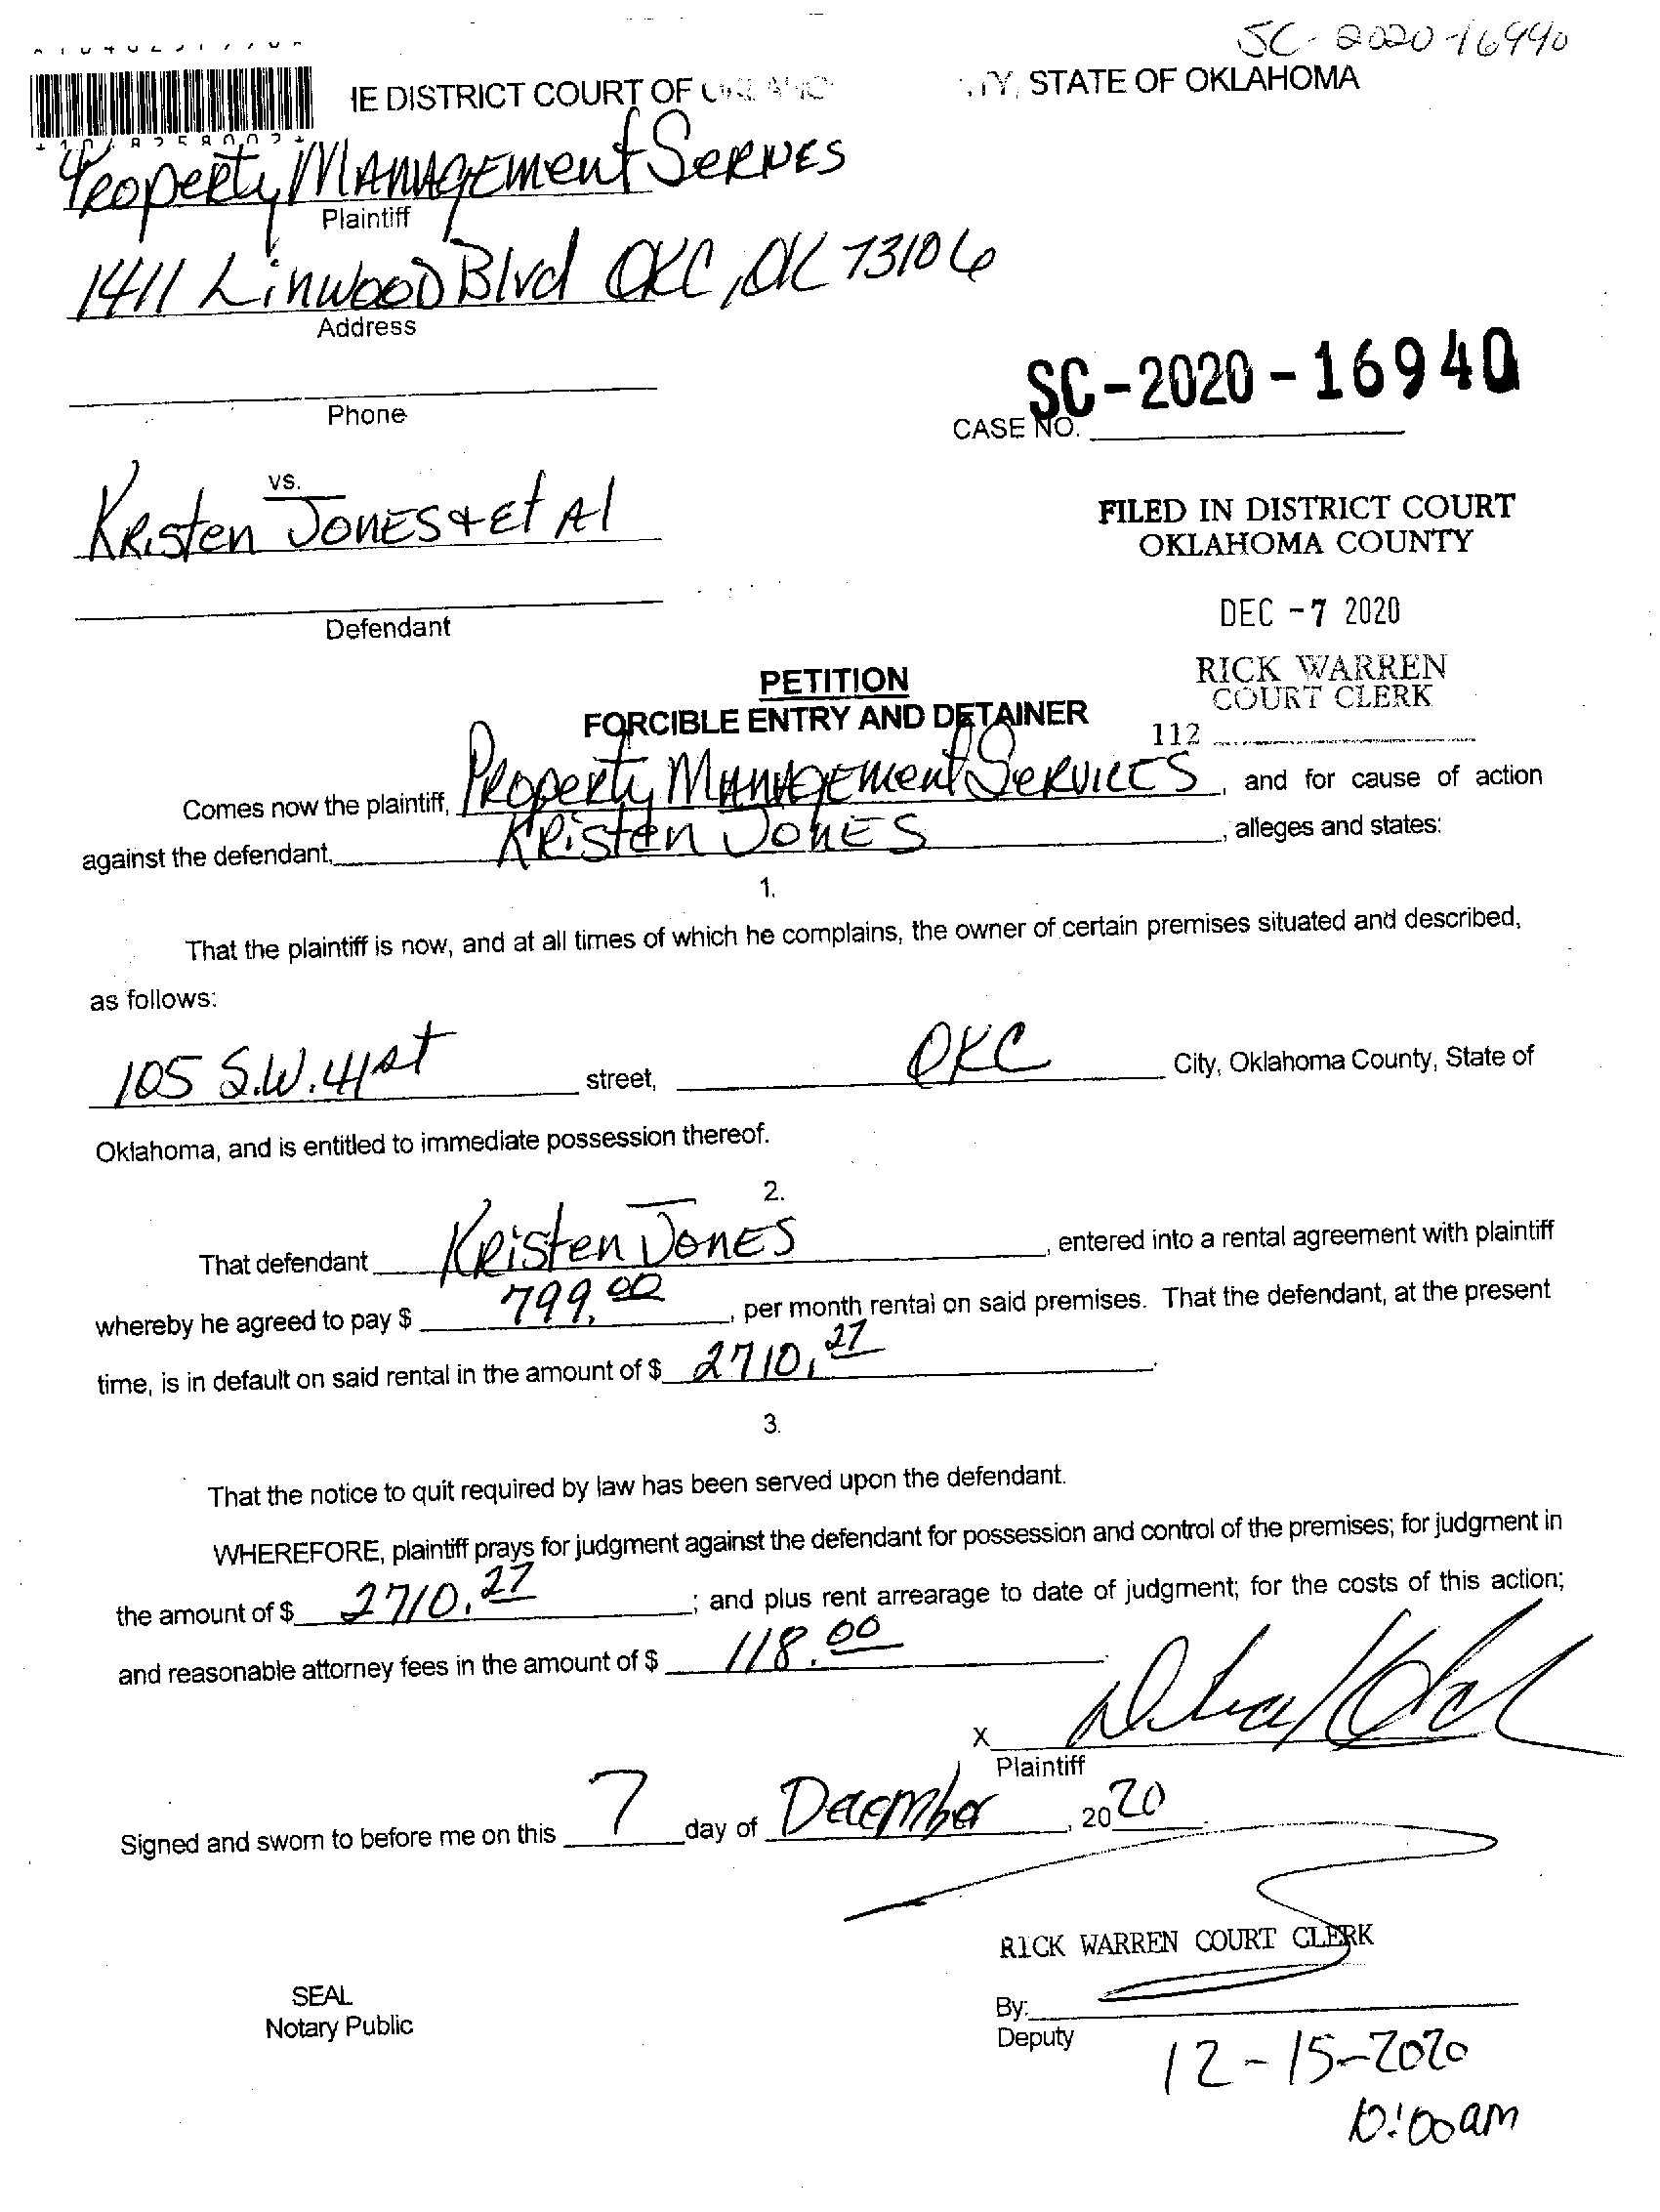 SC-2020-16940
IE DISTRICT COURT OF TY, STATE OF OKLAHOMA
Property Management Serives
Plaintiff
1411 Linwood Blvd OKC, OK 73106
Address
Phone
SC-2020-16940
CASE NO.
vs.
Kristen Jones & et Al
FILED IN DISTRICT COURT
OKLAHOMA COUNTY
Defendant
DEC -7 2020
PETITION
RICK WARREN
COURT CLERK
FORCIBLE ENTRY AND DETAINER
112
Comes now the plaintiff, Property Management Services, and for cause of action
against the defendant, Kristen Jones, alleges and states:
1.
That the plaintiff is now, and at all times of which he complains, the owner of certain premises situated and described,
as follows:
105 S.W. 41st street, OKC City, Oklahoma County, State of
Oklahoma, and is entitled to immediate possession thereof.
2.
That defendant Kristen Jones, entered into a rental agreement with plaintiff
whereby he agreed to pay $ 799.00, per month rental on said premises. That the defendant, at the present
time, is in default on said rental in the amount of $ 2710.27.
3.
That the notice to quit required by law has been served upon the defendant.
WHEREFORE, plaintiff prays for judgment against the defendant for possession and control of the premises; for judgment in
the amount of $ 2710.27; and plus rent arrearage to date of judgment; for the costs of this action;
and reasonable attorney fees in the amount of $ 118.00.
X
Plaintiff
Signed and sworn to before me on this 7 day of December, 2020.
RICK WARREN COURT CLERK
SEAL
Notary Public
By:
Deputy
12-15-2020
10:00am